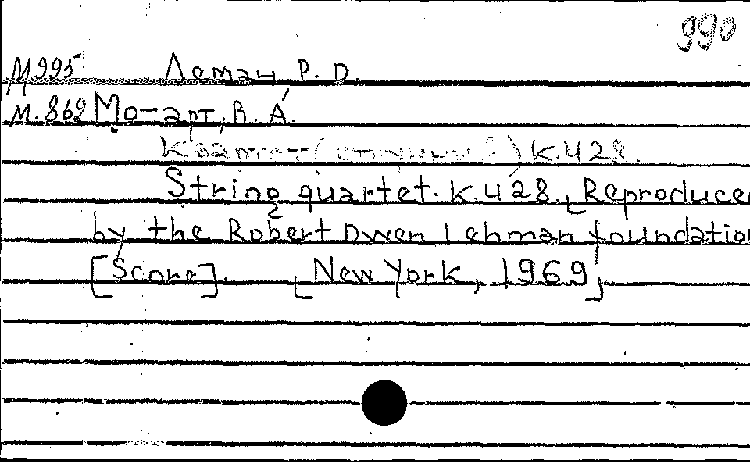 990
М995 Леман, Р. D.
М.862 Моцарт, В. А.
Квартет (струнный) К.428.
String quartet. K.428. [Reproduced
by the Robert Owen Lehman foundation
[Score]. [New York, 1969]